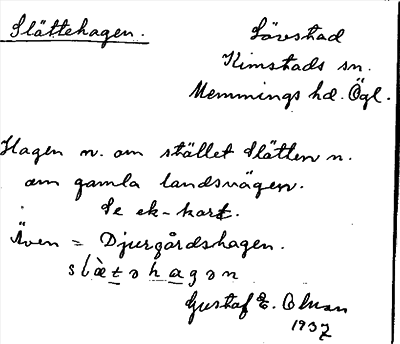 Slättehagen.
Lövstad
Kimstads sn.
Memmings hd. Ögl.
Hagen n. om stället Slätten n.
om gamla landsvägen.
Se ek-kart.
Även = Djurgårdshagen.
slæ̀təhagən
Gustaf E. Olsson
1937